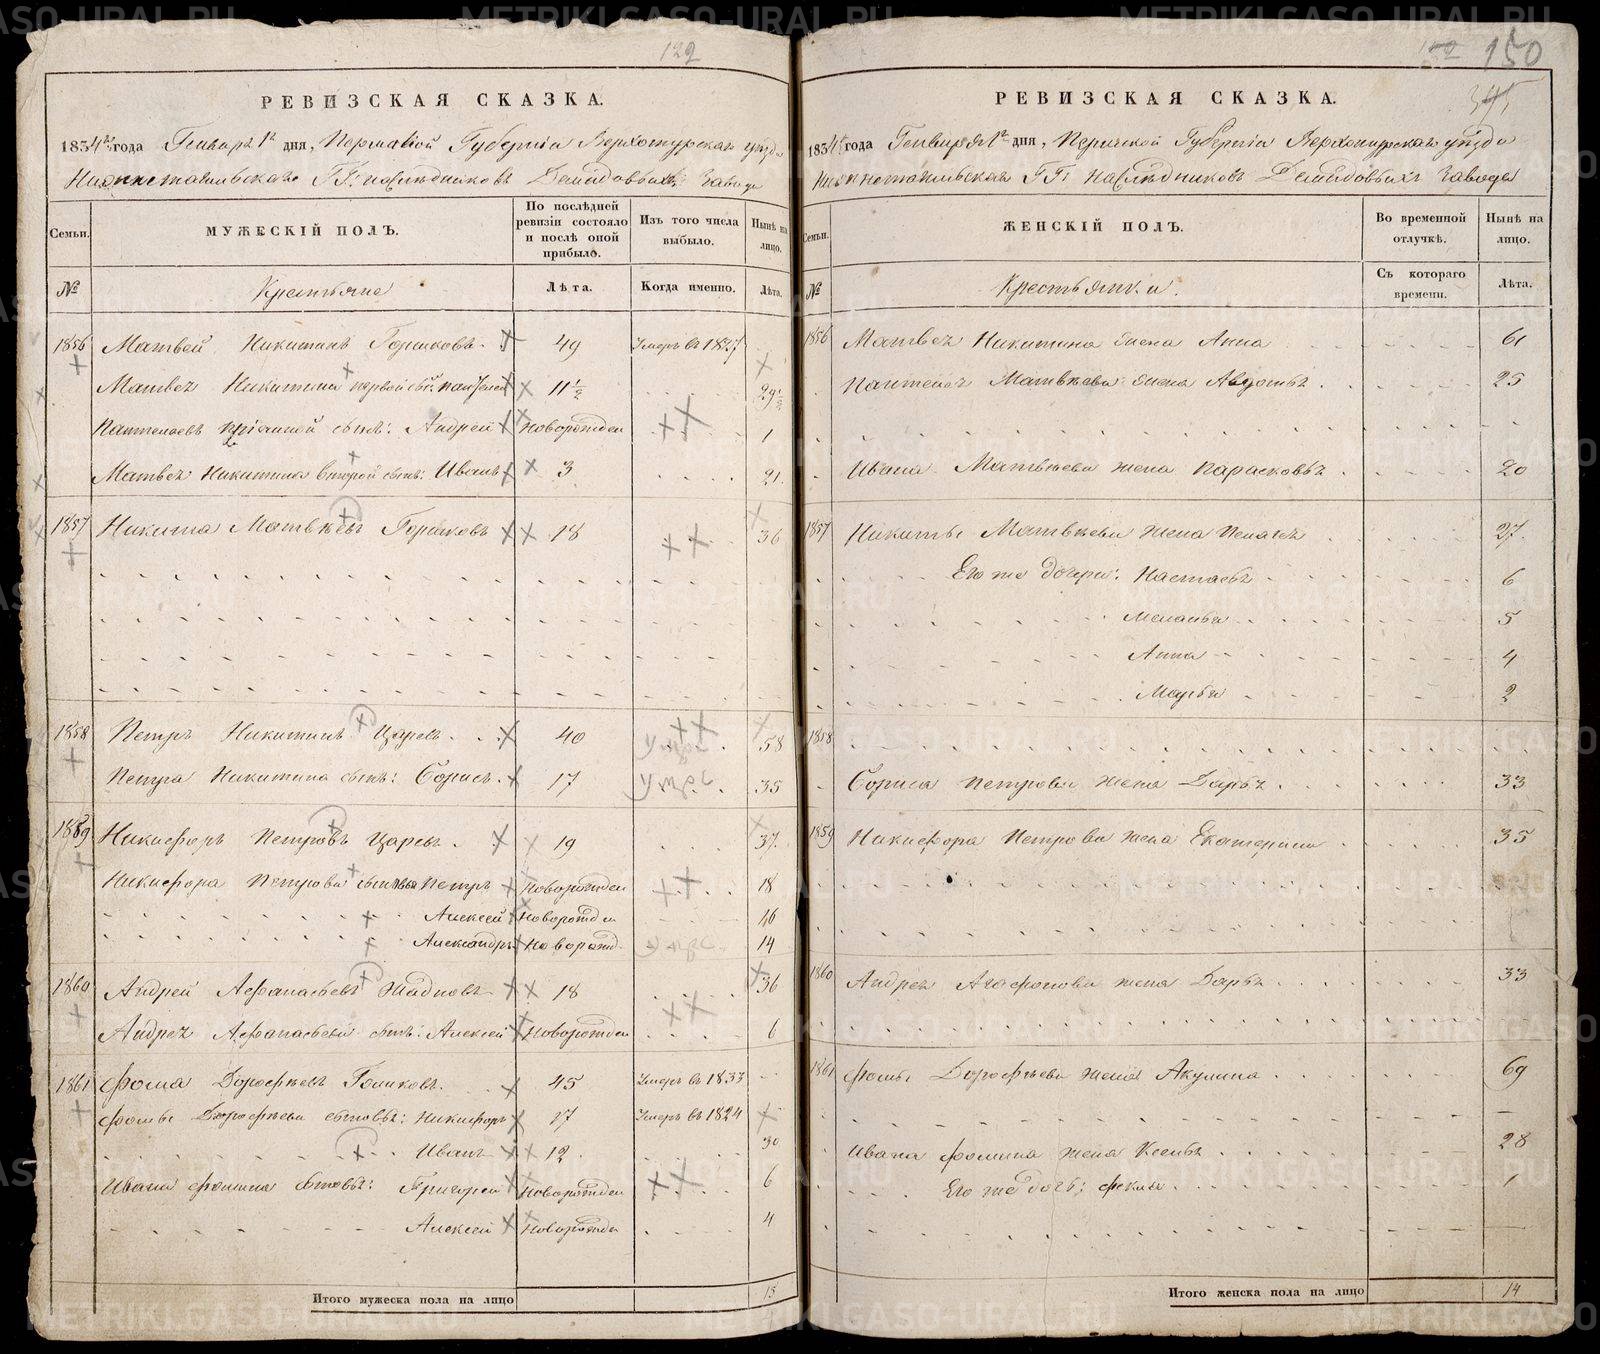 122
РЕВИЗСКАЯ СКАЗКА.
1834го года Генваря 1го дня, Пермской Губернiи Верхотурскаго уѣзда
Нижнетагильскаго ГГ. наслѣдниковъ Демидовыхъ завода
Семьи.
МУЖЕСКIЙ ПОЛЪ.
По послѣдней ревизiи состояло и послѣ оной прибыло.
Изъ того числа выбыло.
Нынѣ на лицо.
№
Крестьяне
Лѣта.
Когда именно.
Лѣта.
1856 Матвей Никитинъ Горшковъ. 49 Умеръ въ 1827
Матвея Никитина первой сынъ Пантелей 11½ 29½
Пантелеевъ сынъ: Андрей Новорожден 1
Матвея Никитина второй сынъ: Иванъ 3 21
1857 Никита Матвѣевъ Горшковъ 18 36
1858 Петръ Никитинъ Царевъ. 40 58
Петра Никитина сынъ: Борисъ. 17 35
1859 Никифоръ Петровъ Царевъ. 19 37
Никифора Петрова сыновья Петръ Новорожден 18
Алексей Новорожден 16
Александръ Новорожд. 14
1860 Андрей Афанасьевъ Жадновъ 18 36
Андрея Афанасьева сынъ: Алексей Новорожден 6
1861 Фома Дорофѣевъ Голиковъ. 45 Умеръ въ 1833
Фомы Дорофѣева сыновья: Никифоръ 17 Умеръ въ 1824
Иванъ 12 30
Ивана Фомина сыновья: Григорей Новорожден 6
Алексей Новорожден 4
Итого мужеска пола на лицо 15
150
РЕВИЗСКАЯ СКАЗКА.
1834го года Генваря 1го дня, Пермской Губернiи Верхотурскаго уѣзда
Нижнетагильскаго ГГ. наслѣдниковъ Демидовыхъ завода
Семьи.
ЖЕНСКIЙ ПОЛЪ.
Во временной отлучкѣ.
Нынѣ на лицо.
№
Крестьянки.
Съ котораго времени.
Лѣта.
1856 Матвея Никитина жена Анна 61
Пантелея Матвѣева жена Авдотья 25
Ивана Матвѣева жена Парасковья 20
1857 Никиты Матвѣева жена Пелагея 27
Его же дочери: Настасья 6
Меланья 5
Анна 4
Марья 2
1858
Бориса Петрова жена Дарья 33
1859 Никифора Петрова жена Екатерина 35
1860 Андрея Агафонова жена Дарья 33
1861 Фомы Дорофѣева жена Акулина 69
Ивана Фомина жена Ксенья 28
Его же дочь: Фекла 1
Итого женска пола на лицо 14
METRIKI.GASO-URAL.RU